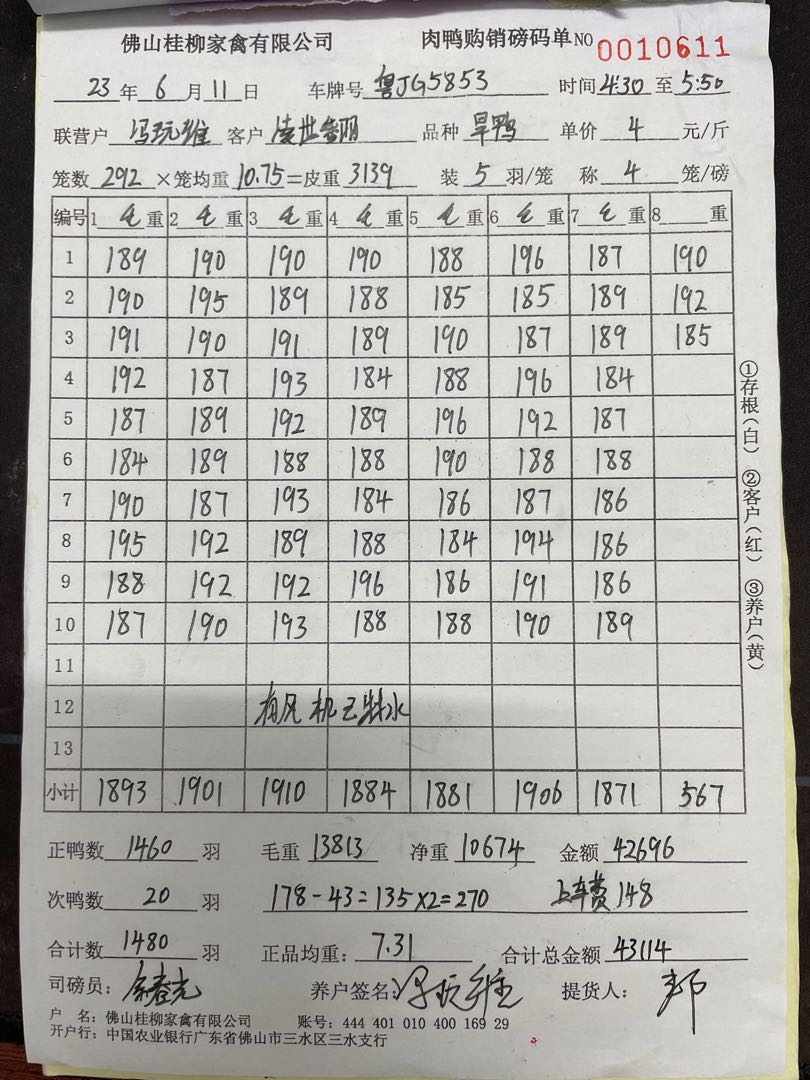 佛山桂柳家禽有限公司 肉鸭购销磅码单 NO 0010611
23 年 6 月 11 日 车牌号 粤JG5853 时间 4:30 至 5:50
联营户 冯玩维 客户 品种 旱鸭 单价 4 元/斤
笼数 292 ×笼均重 10.75 =皮重 3139 装 5 羽/笼 称 4 笼/磅
编号 1 毛 重 2 毛 重 3 毛 重 4 毛 重 5 毛 重 6 毛 重 7 毛 重 8 重
1 189 190 190 190 188 196 187 190
2 190 195 189 188 185 185 189 192
3 191 190 191 189 190 187 189 185
4 192 187 193 184 188 196 184
5 187 189 192 189 196 192 187
6 184 189 188 188 190 188 188
7 190 187 193 184 186 187 186
8 195 192 189 188 184 194 186
9 188 192 192 196 186 191 186
10 187 190 193 188 188 190 189
11
12 有风机 水
13
小计 1893 1901 1910 1884 1881 1906 1871 567
正鸭数 1460 羽 毛重 13813 净重 10674 金额 42696
次鸭数 20 羽 178-43=135×2=270 上车费 148
合计数 1480 羽 正品均重: 7.31 合计总金额 43114
司磅员: 养户签名: 冯玩维 提货人:
户 名: 佛山桂柳家禽有限公司 账号: 444 401 010 400 169 29
开户行: 中国农业银行广东省佛山市三水区三水支行
①存根(白) ②客户(红) ③养户(黄)